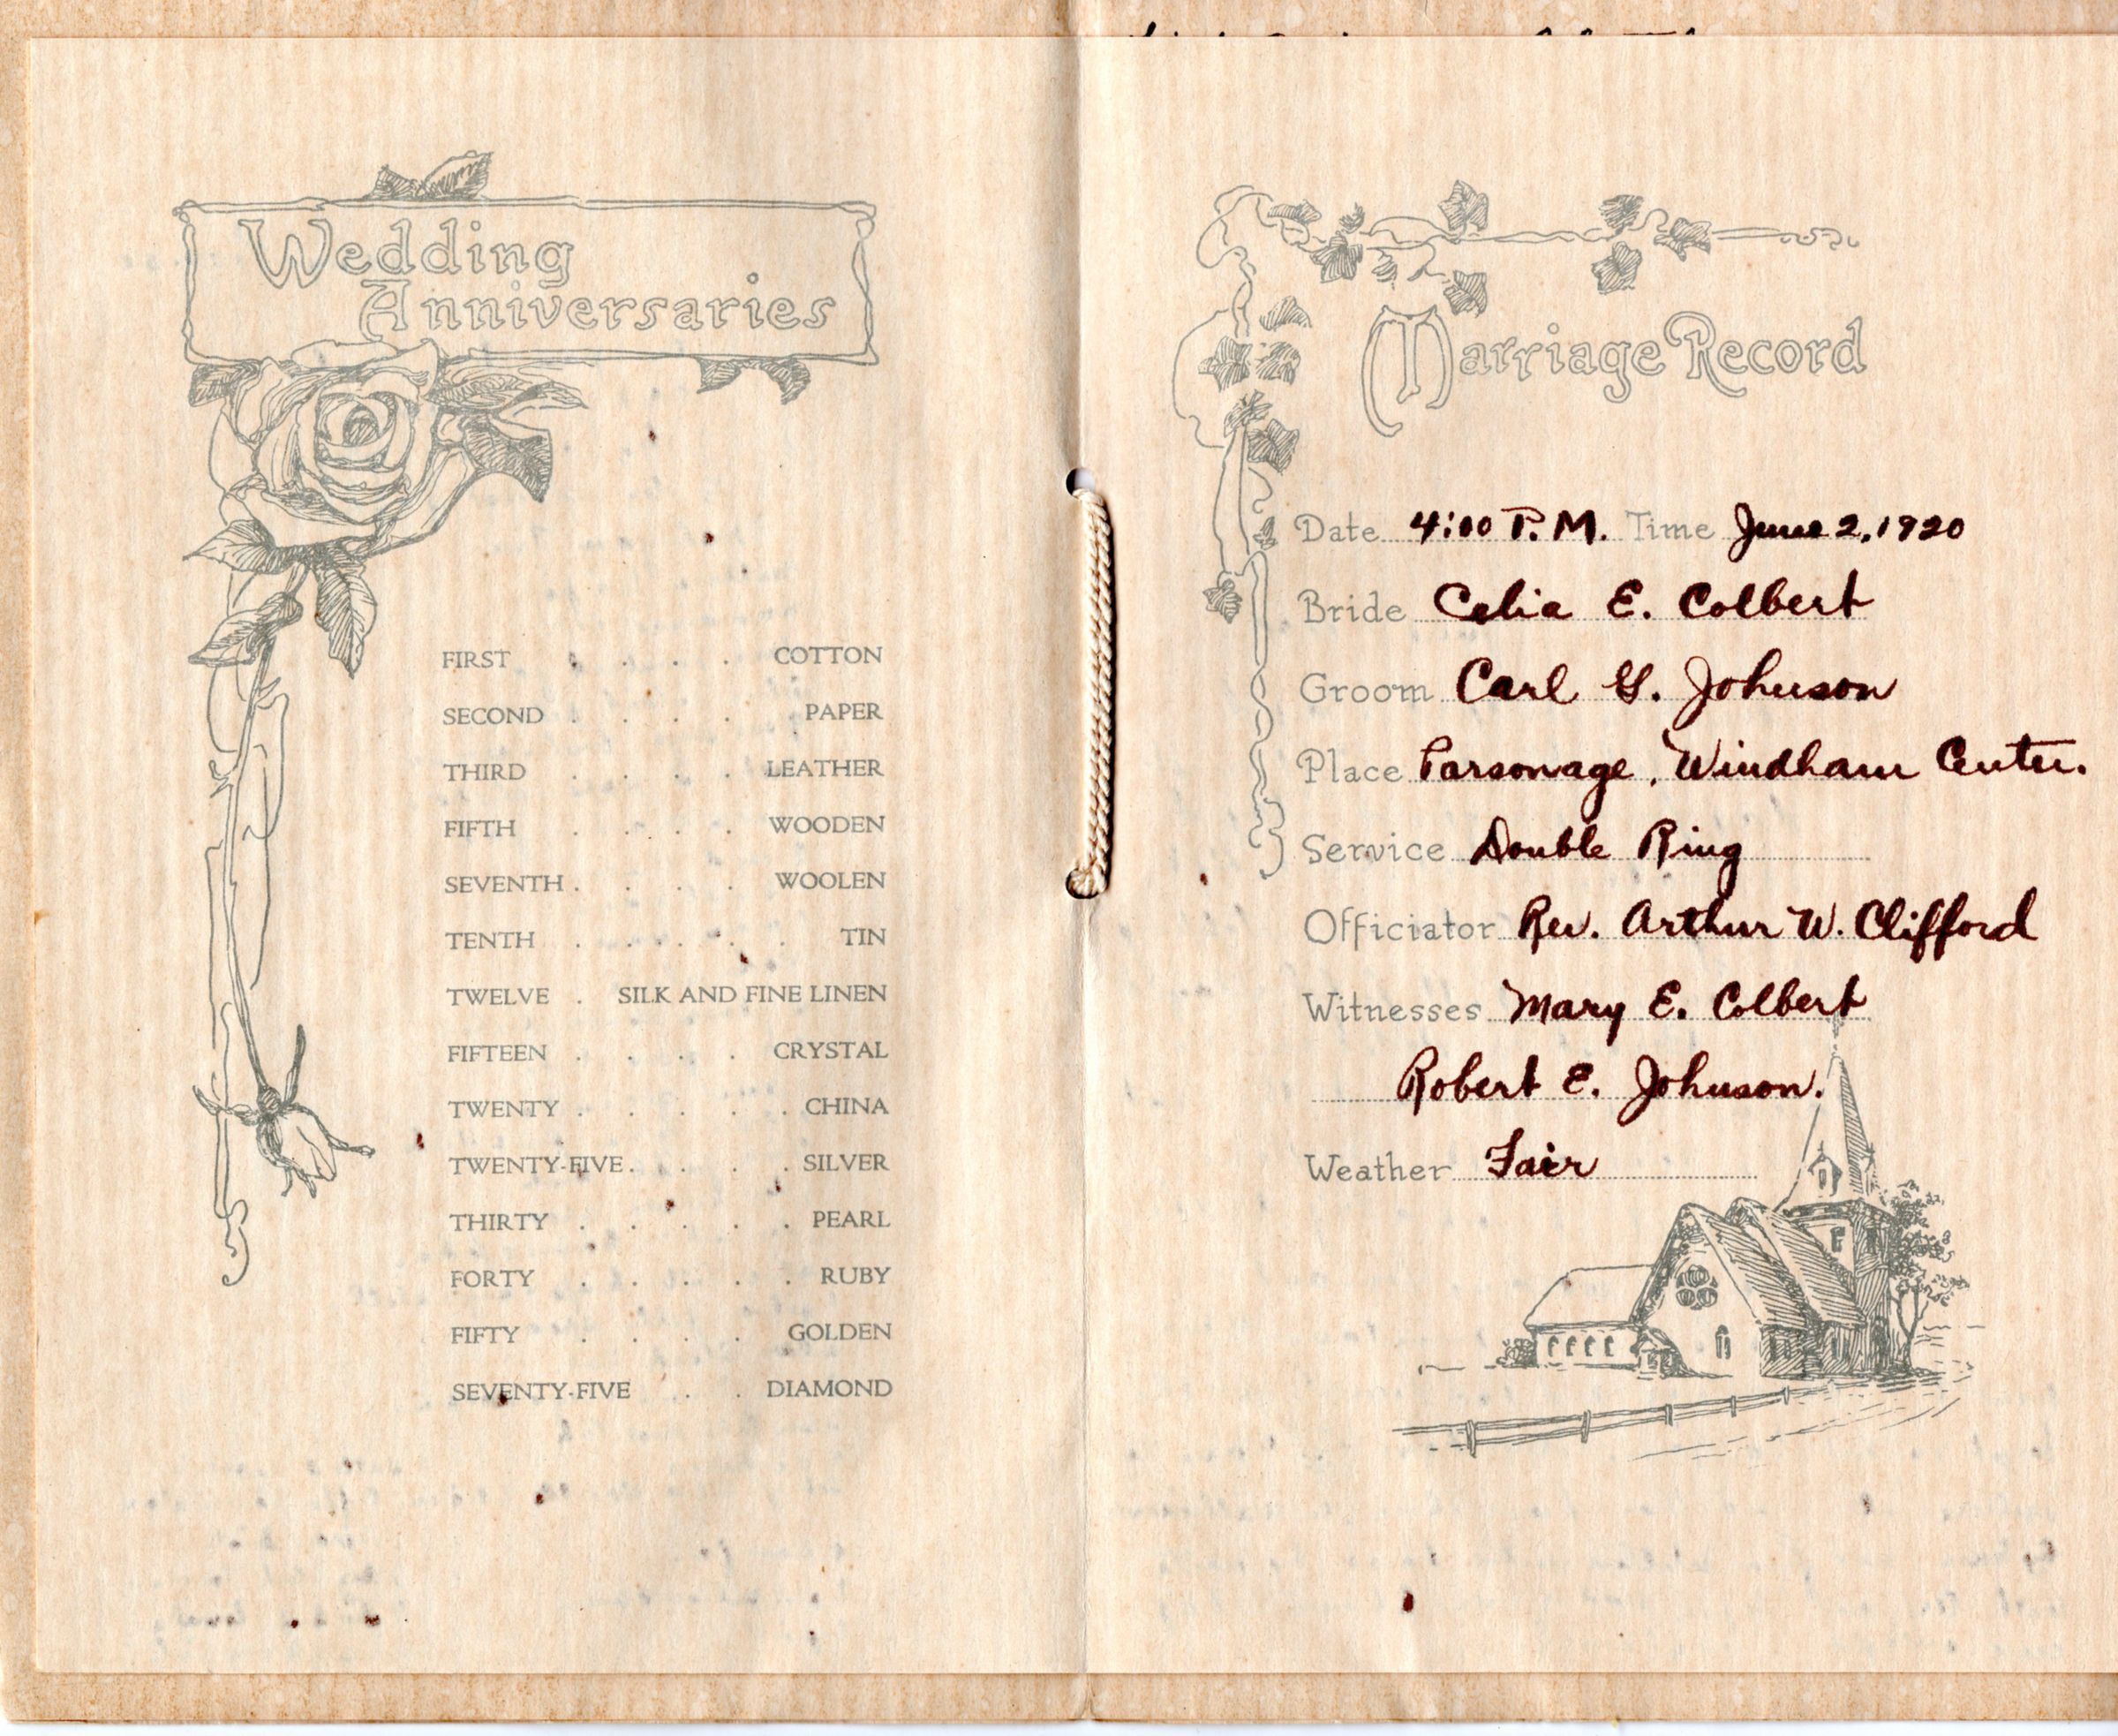 Wedding
Anniversaries
FIRST . . . . COTTON
SECOND . . . . PAPER
THIRD . . . . LEATHER
FIFTH . . . . WOODEN
SEVENTH . . . . WOOLEN
TENTH . . . . . TIN
TWELVE . SILK AND FINE LINEN
FIFTEEN . . . . CRYSTAL
TWENTY . . . . . CHINA
TWENTY-FIVE . . . . SILVER
THIRTY . . . . . PEARL
FORTY . . . . . RUBY
FIFTY . . . . GOLDEN
SEVENTY-FIVE . . DIAMOND
Marriage Record
Date 4:00 P.M. Time June 2, 1920
Bride Celia E. Colbert
Groom Carl G. Johnson
Place Parsonage, Windham Center.
Service Double Ring
Officiator Rev. Arthur W. Clifford
Witnesses Mary E. Colbert
Robert E. Johnson.
Weather Fair